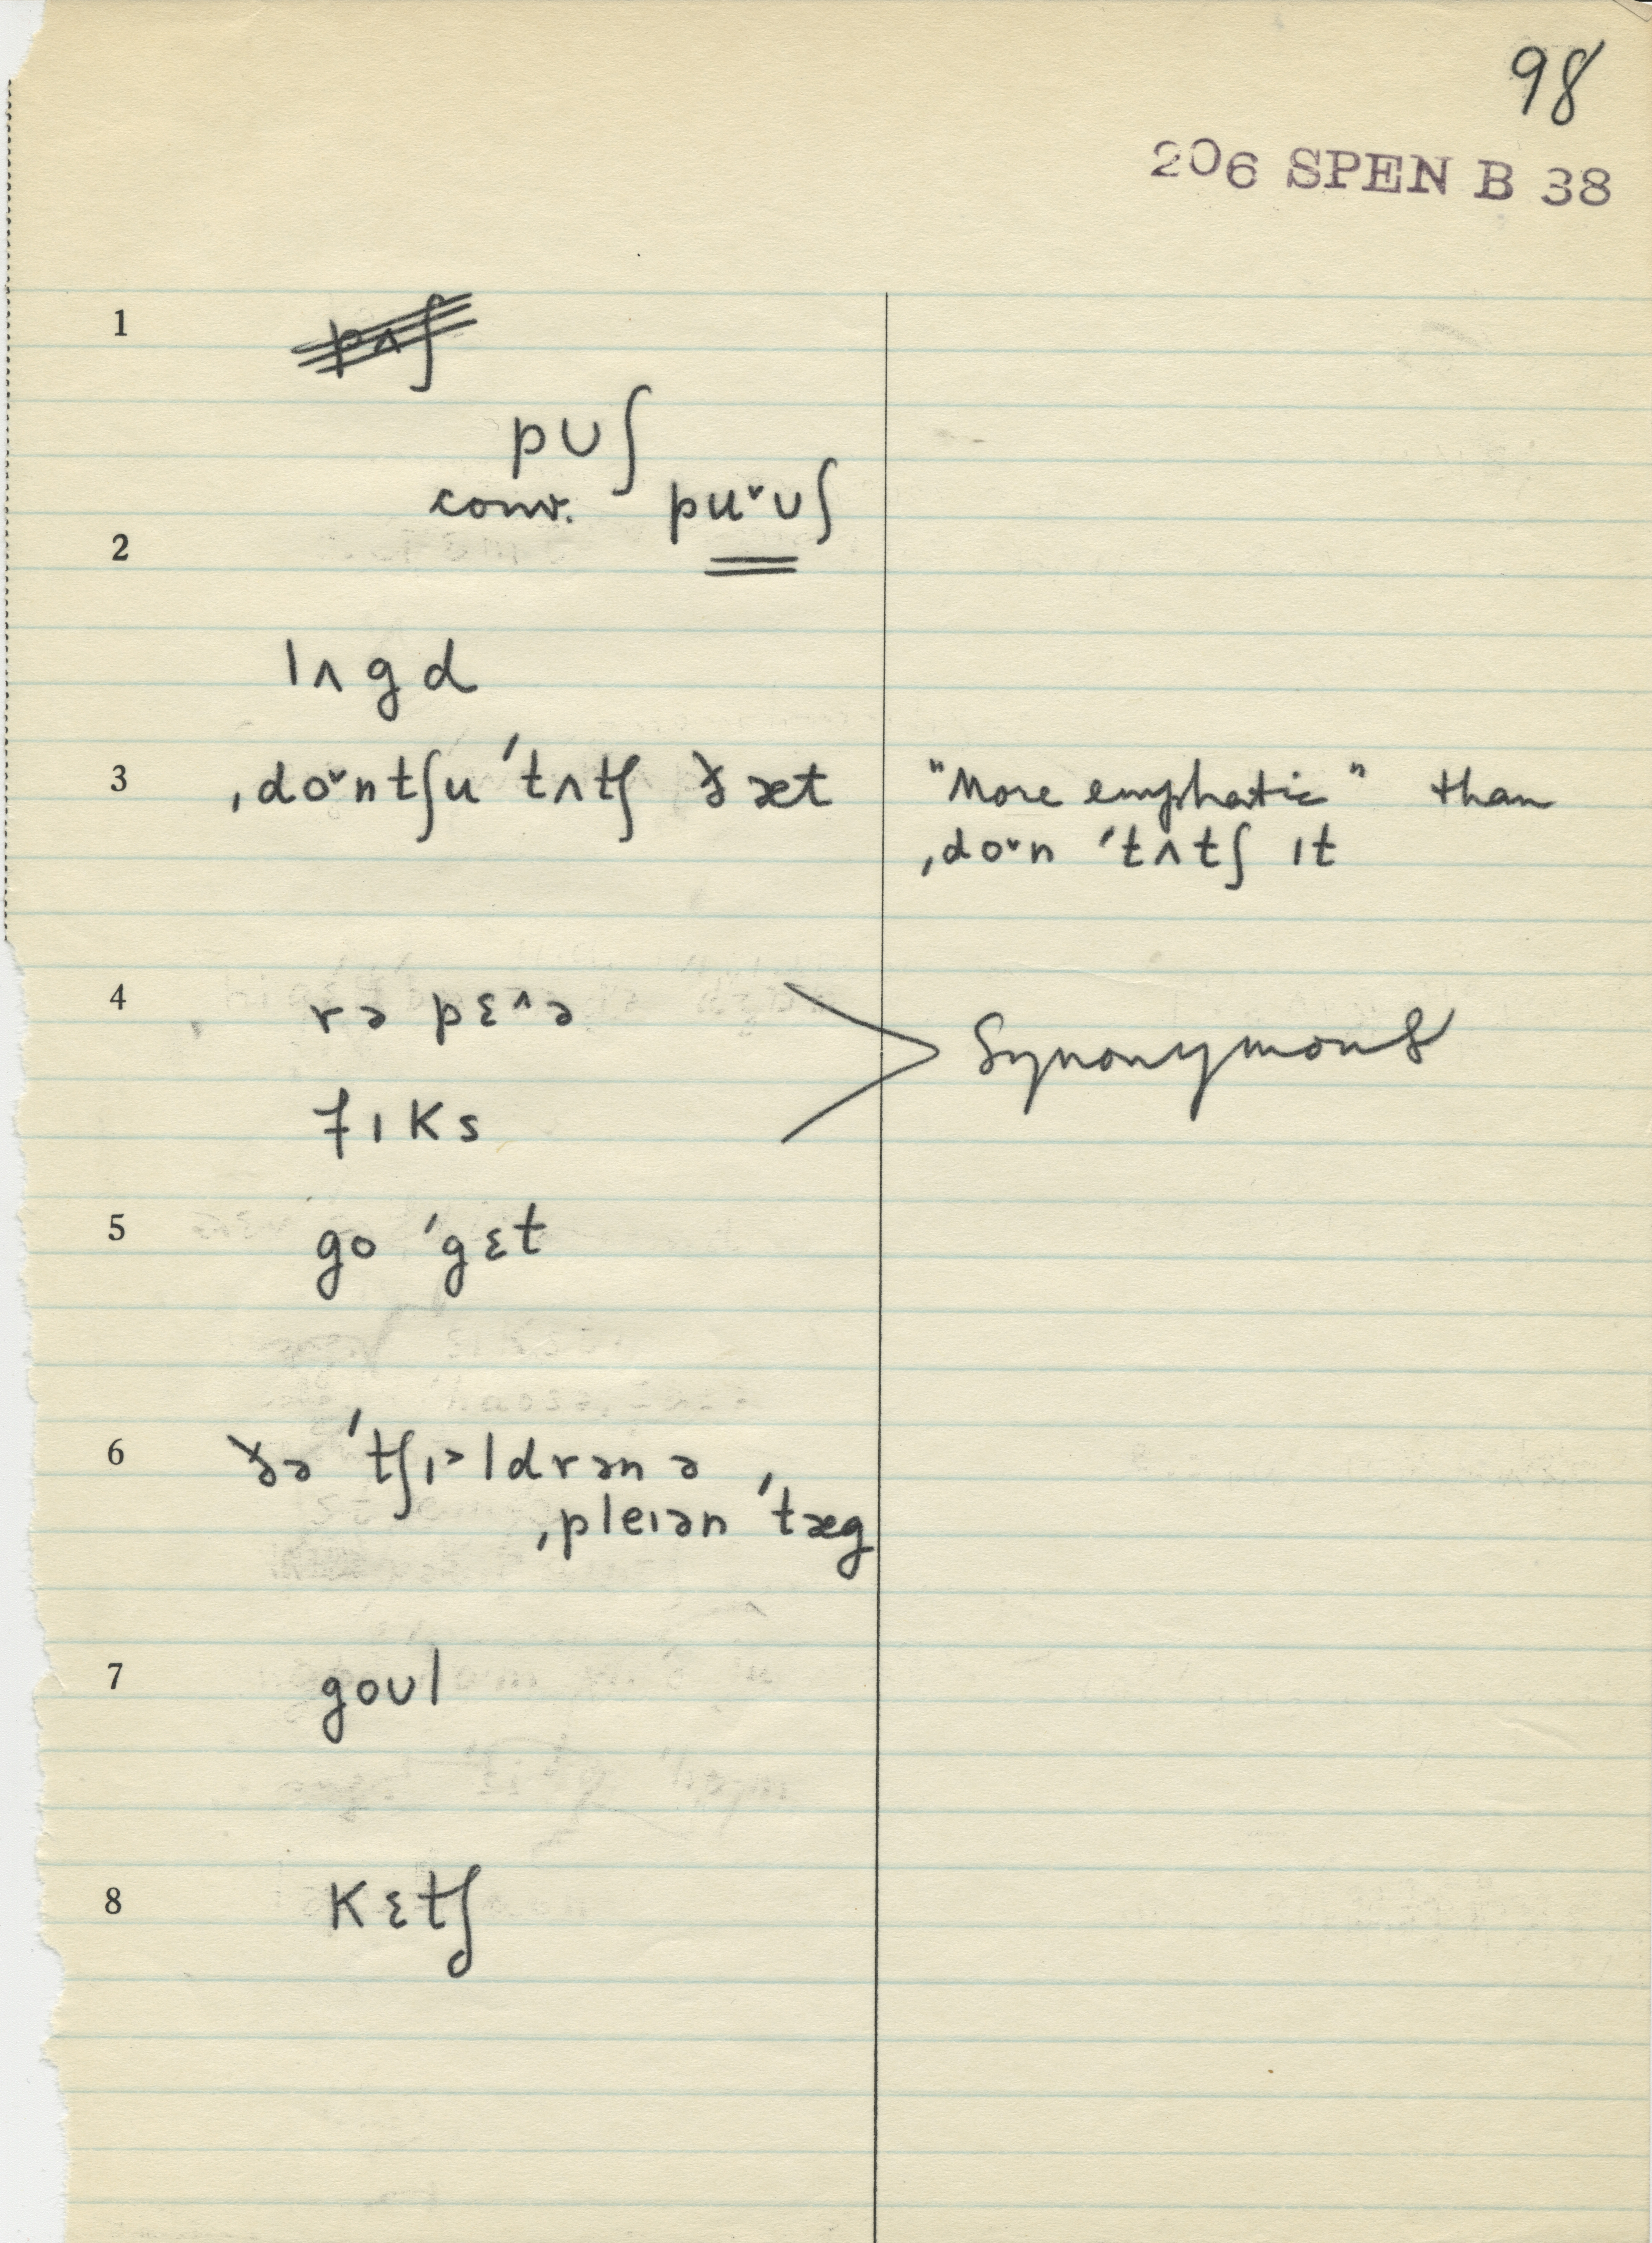 98
206 SPEN B 38
1 pʌʃ
pʊʃ
conv. puˇʊʃ
2
lʌgd
3 ˌdoˇntʃu ˈtʌtʃ ðæt "More emphatic" than
ˌdoˇn ˈtʌtʃ ɪt
4 rə pɛ^ə
Synonymous
fɪks
5 go ˈgɛt
6 ðə ˈtʃɪ˃ldrən ə
ˌpleɪən ˈtæg
7 goʊl
8 kɛtʃ